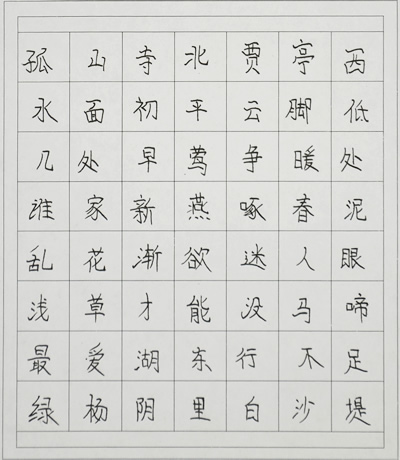 孤山寺北贾亭西
水面初平云脚低
几处早莺争暖处
谁家新燕啄春泥
乱花渐欲迷人眼
浅草才能没马啼
最爱湖东行不足
绿杨阴里白沙堤